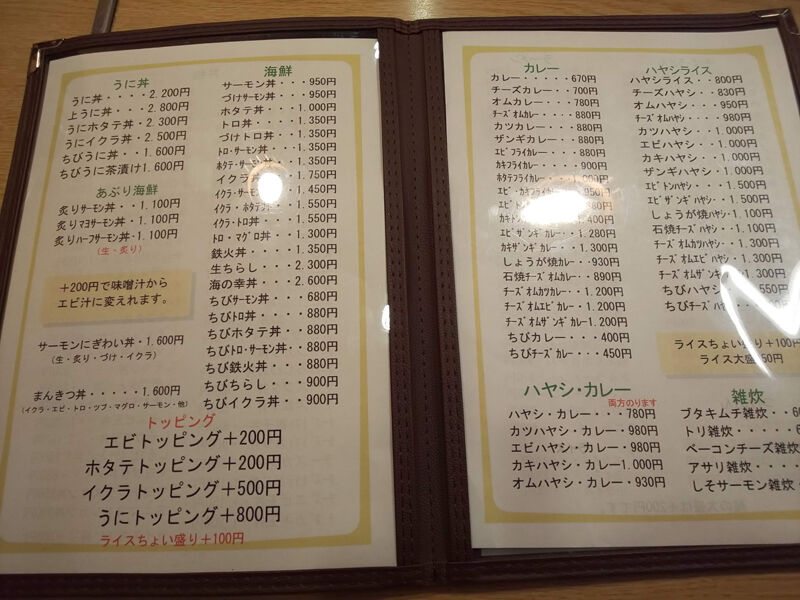 うに丼
うに丼・・・・2.200円
上うに丼・・・2.800円
うにホタテ丼・2.300円
うにイクラ丼・2.500円
ちびうに丼・・1.600円
ちびうに茶漬け1.600円
あぶり海鮮
炙りサーモン丼・1.100円
炙りマヨサーモン丼・1.100円
炙りハーフサーモン丼・1.100円
(生・炙り)
+200円で味噌汁から
エビ汁に変えれます。
サーモンにぎわい丼・1.600円
(生・炙り・づけ・イクラ)
まんきつ丼・・・・・1.600円
(イクラ・エビ・トロ・ツブ・マグロ・サーモン・他)
海鮮
サーモン丼・・・950円
づけサーモン丼・・・950円
ホタテ丼・・・1.000円
トロ丼・・・・1.350円
づけトロ丼・・1.350円
トロ・サーモン丼・・1.350円
ホタテ・サーモン丼・・1.350円
イクラ丼・・1.750円
イクラ・サーモン1.450円
イクラ・ホタテ丼1.550円
イクラ・トロ丼・・1.550円
トロ・マグロ丼・・1.300円
鉄火丼・・・・1.350円
生ちらし・・・2.300円
海の幸丼・・・2.600円
ちびサーモン丼・・680円
ちびトロ丼・・・880円
ちびホタテ丼・・880円
ちびトロ・サーモン丼・・880円
ちび鉄火丼・・・880円
ちびちらし・・・900円
ちびイクラ丼・・900円
トッピング
エビトッピング+200円
ホタテトッピング+200円
イクラトッピング+500円
うにトッピング+800円
ライスちょい盛り+100円
カレー
カレー・・・・・670円
チーズカレー・・・700円
オムカレー・・・・780円
チーズオムカレー・・・880円
カツカレー・・・・880円
ザンギカレー・・・880円
エビフライカレー・・・880円
カキフライカレー・・・900円
ホタテフライカレー
エビ・カキフライカレー950円
エビトン
カキトン 400円
エビザンギカレー・1.280円
カキザンギカレー・・1.300円
しょうが焼カレー・930円
石焼チーズオムカレー・・890円
チーズオムカツカレー・1.200円
チーズオムエビカレー・1.200円
チーズオムザンギカレー1.200円
ちびカレー・・・400円
ちびチーズカレー・・450円
ハヤシ・カレー
両方のります
ハヤシ・カレー・・・780円
カツハヤシ・カレー・980円
エビハヤシ・カレー・980円
カキハヤシ・カレー1.000円
オムハヤシ・カレー・930円
ハヤシライス
ハヤシライス・・・800円
チーズハヤシ・・・830円
オムハヤシ・・・・950円
チーズオムハヤシ・・・980円
カツハヤシ・・1.000円
エビハヤシ・・1.000円
カキハヤシ・・1.000円
ザンギハヤシ・1.000円
エビトンハヤシ・・・1.500円
エビザンギハヤシ・・1.500円
しょうが焼ハヤシ・1.100円
石焼チーズハヤシ・・1.100円
チーズオムカツハヤシ・・1.300円
チーズオムエビハヤシ・1.300円
チーズオムザンギハヤシ・1.300円
ちびハヤシ 550円
ちびチーズハヤシ
ライスちょい盛り+100円
ライス大盛 50円
雑炊
ブタキムチ雑炊・・
トリ雑炊・・・・
ベーコンチーズ雑炊
アサリ雑炊・・・・
しそサーモン雑炊・